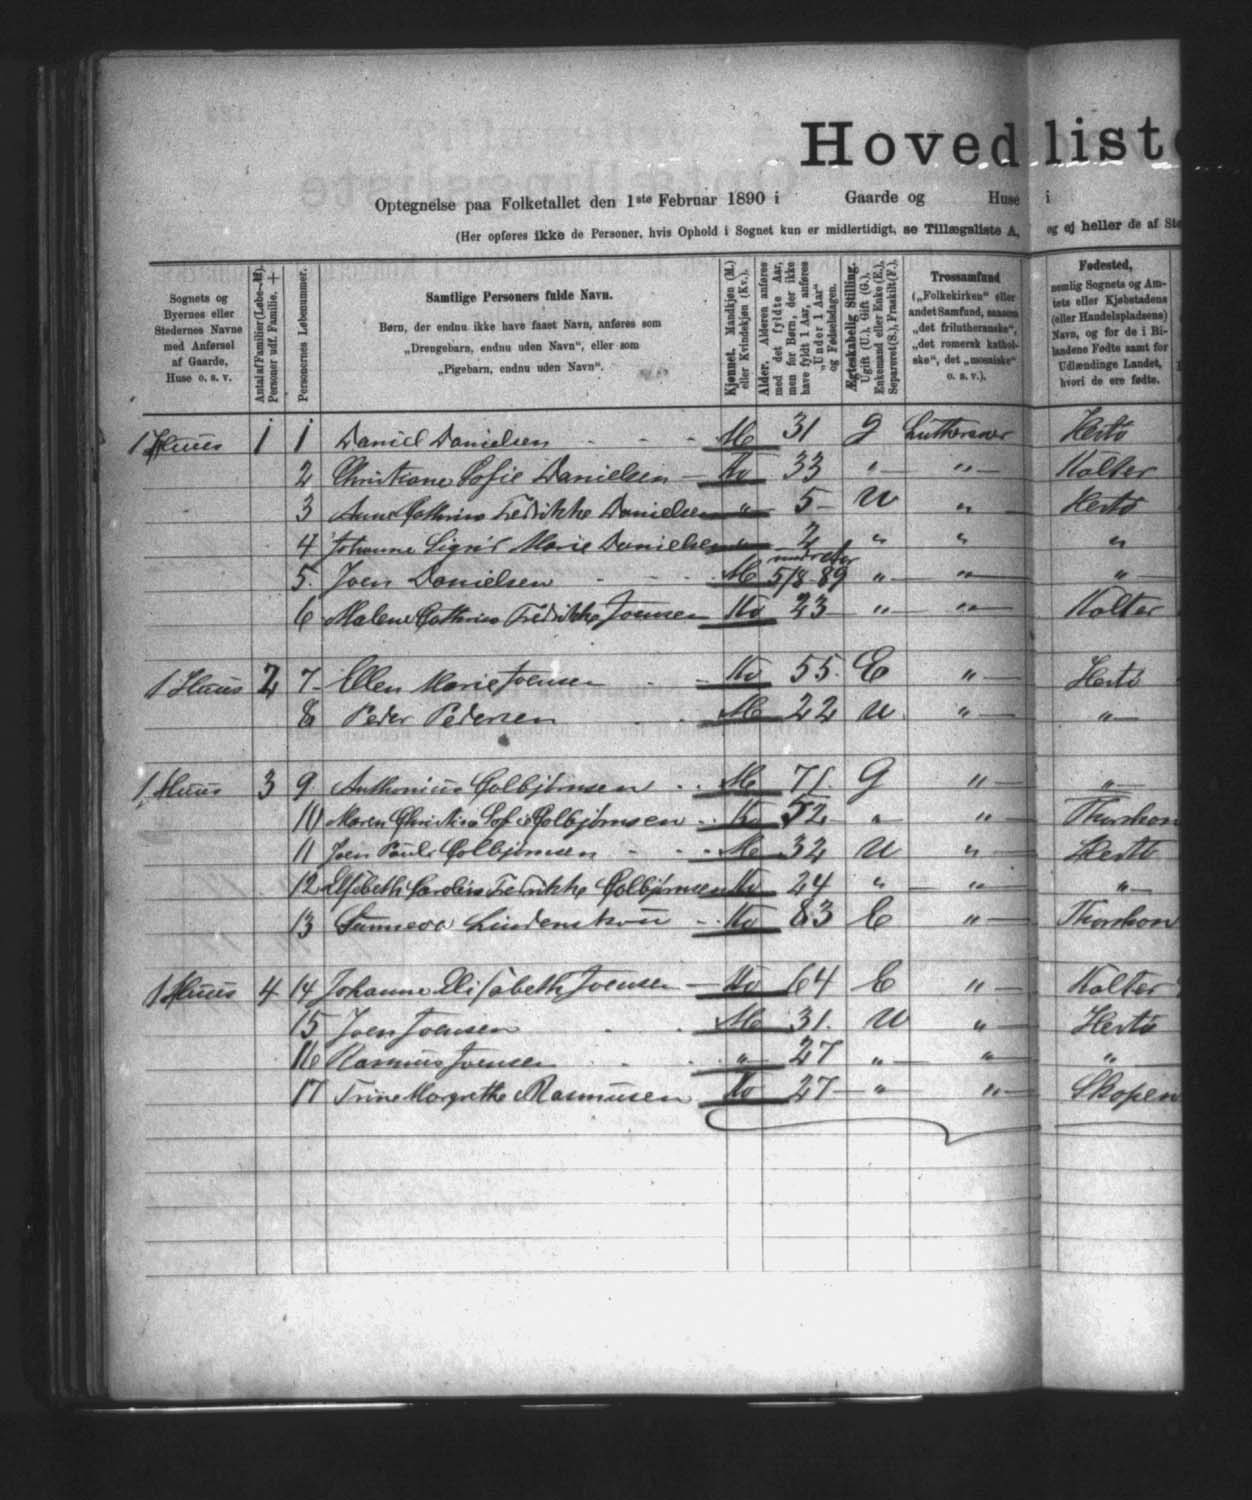 Hovedliste
Optegnelse paa Folketallet den 1ste Februar 1890 i Gaarde og Huse i
(Her opføres ikke de Personer, hvis Ophold i Sognet kun er midlertidigt, se Tillægsliste A, og ej heller de af
Sognets og Byernes eller Stedernes Navne med Anførsel af Gaarde, Huse o. s. v.
Antal af Familier (Løbe-№). Personer udf. Familie. +
Personernes Løbenummer.
Samtlige Personers fulde Navn.
Børn, der endnu ikke have faaet Navn, anføres som
„Drengebarn, endnu uden Navn“, eller som
„Pigebarn, endnu uden Navn“.
Kjønnet. Mandkjøn (M.) eller Kvindekjøn (Kv.).
Alder. Alderen anføres med det fyldte Aar, men for Børn, der ikke have fyldt 1 Aar, anføres „Under 1 Aar“ og Fødselsdagen.
Ægteskabelig Stilling. Ugift (U.), Gift (G.), Enkemand eller Enke (E.), Separeret (S.), Fraskilt (F.).
Trossamfund („Folkekirken“ eller andet Samfund, saasom „det frilutheranske“, „det romersk katholske“, det „mosaiske“ o. s. v.).
Fødested, nemlig Sognets og Amtets eller Kjøbstadens (eller Handelspladsens) Navn, og for de i Bilandene Fødte samt for Udlændinge Landet, hvori de ere fødte.
1 Huus 1 1 Daniel Danielsen - - - M 31 g Lutheraner Hestö
2 Christiane Sofie Danielsen - Kv 33 " " Kolter
3 Anna Cathrina Fredrikke Danielsen " 5 U " Hestö
4 Johanne Marie Danielsen " 2 " " "
5 Joen Danielsen - - - M 5/8 89 " " "
6 Malene Cathrina Fredrikke Joensen Kv 23 " " Kolter
1 Huus 2 7 Ellen Marie Joensen - - Kv 55 E " Hestö
8 Peder Pedersen - - M 22 U " "
1 Huus 3 9 Anthonius Colbjörnsen - - M 71 G " "
10 Maren Christina Sofie Colbjörnsen - Kv 52 " " Thorshavn
11 Joen Pauli Colbjörnsen - - - M 32 U " Hestö
12 Elsebeth Carolina Fredrikke Colbjörnsen Kv 24 " " "
13 Sunneva Lindenskou - Kv 83 E " Thorshavn
1 Huus 4 14 Johanne Elisabeth Joensen - Kv 64 E " Kolter
15 Joen Joensen - - M 31 U " Hestö
16 Rasmus Joensen - - " 27 " " "
17 Trine Margrethe Rasmusen Kv 27 " " Skopen